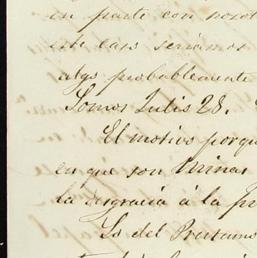 en parte con nosot
este caso seriamos
algo probablemente
Somos Julis 28.
El motivo porque
en que son Minas
la desgracia á la pr
Lo del Prestamo